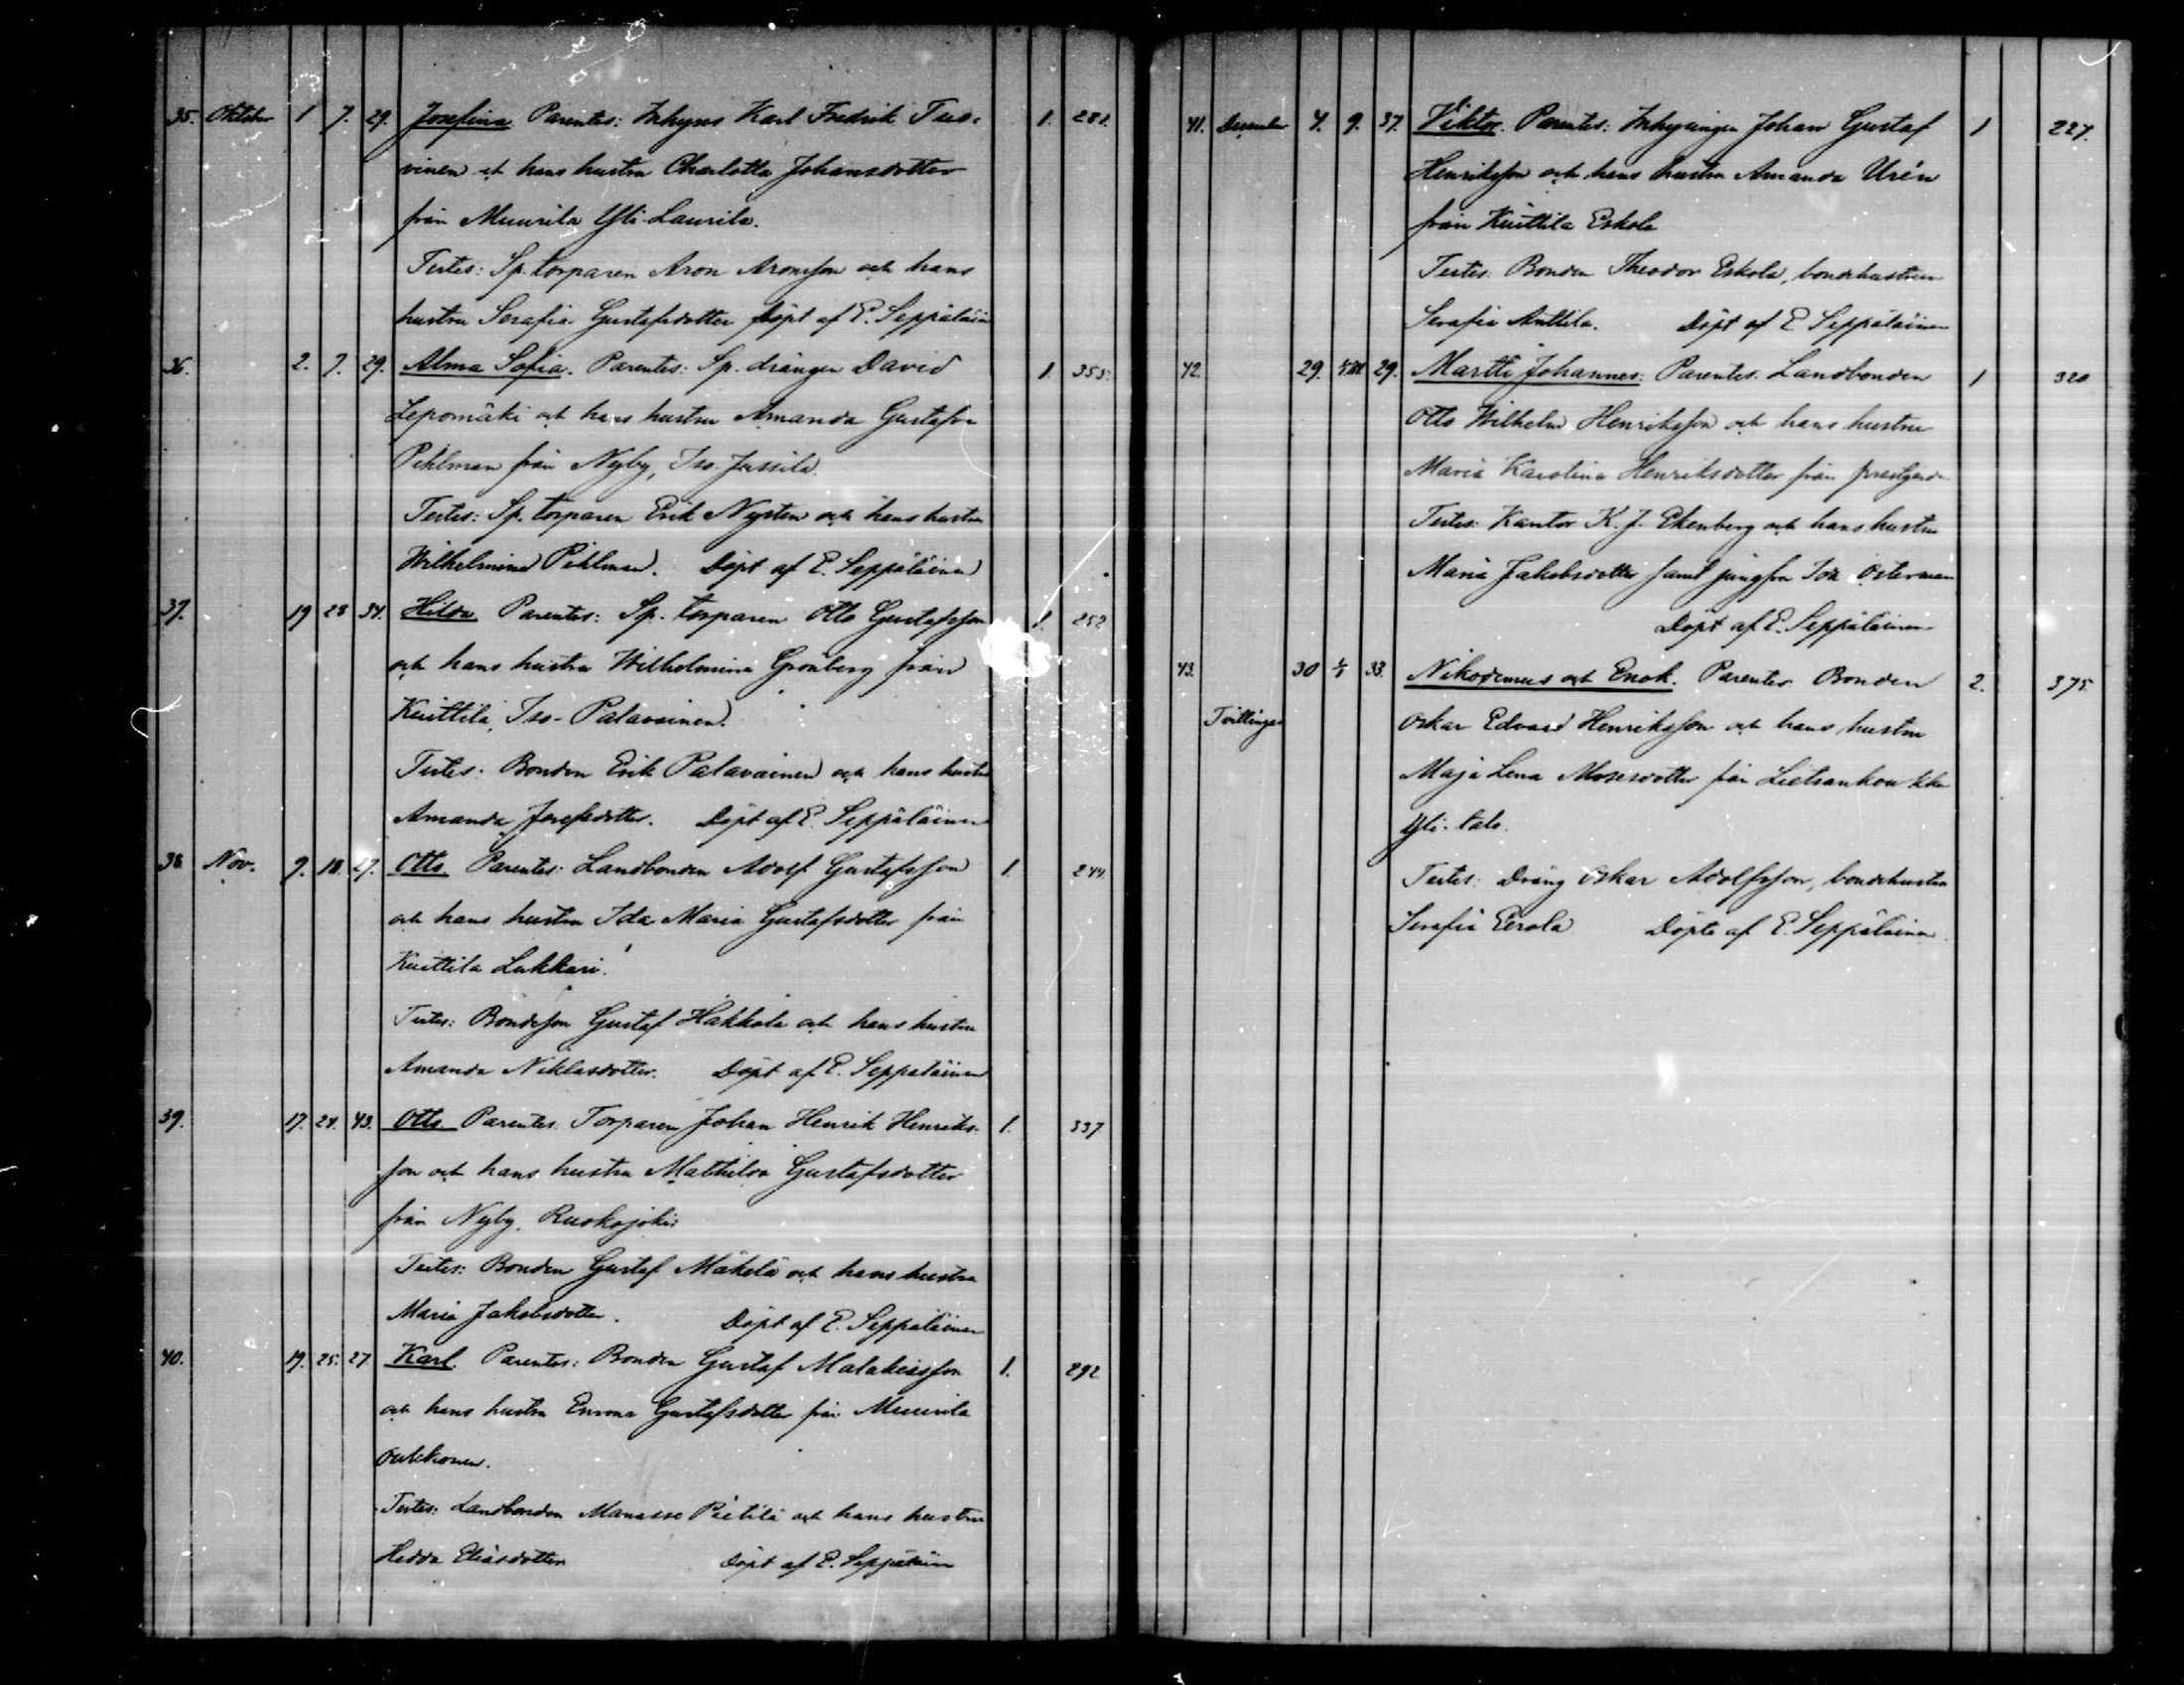 35. Oktober 1 7. 29. Josefina Parentes: Inhyses Karl Fredrik Tuo- 1. 281.
vinen et hans hustru Charlotta Johansdotter
från Muurila Yli-Laurila.
Testes: Sp. torparen Aron Aronsson och hans
hustru Serafia Gustafsdotter Döpt af E. Seppäläinen
36. 2. 7. 29. Alma Sofia. Parentes: Sp. drängen David 1. 355.
Lepomäki och hans hustru Amanda Gustafva
Pihlman från Nyby, Iso-Jussila.
Testes: Sp. torparen Erik Nysten och hans hustru
Wilhelmina Pihlman. Döpt af E. Seppäläinen
37. 19 28 34. Hilda Parentes: Sp. torparen Otto Gustafsson 1. 252
och hans hustru Wilhelmina Grönberg från
Kuittila, Iso-Palavainen.
Testes: Bonden Erik Palavainen och hans hustru
Amanda Josefsdotter. Döpt af E. Seppäläinen
38 Nov. 9. 18. 27. Otto Parentes: Landbonden Adolf Gustafsson 1. 244.
och hans hustru Ida Maria Gustafsdotter från
Kuittila Lukkari.
Testes: Bondeson Gustaf Hakkola och hans hustru
Amanda Niklasdotter. Döpt af E. Seppäläinen
39. 17. 24. 43. Otto Parentes. Torparen Johan Henrik Henriks- 1. 337
son och hans hustru Mathilda Gustafsdotter
från Nyby, Ruskojoki
Testes: Bonden Gustaf Mäkelä och hans hustru
Maria Jakobsdotter. Döpt af E. Seppäläinen
40. 19. 25. 27 Karl. Parentes: Bonden Gustaf Malakiasson 1. 292
och hans hustru Emma Gustafsdotter från Muurila
Outokonen.
Testes: Landbonden Manasse Pietilä och hans hustru
Hedda Eliasdotter Döpt af E. Seppäläinen
41. December 4. 9. 37. Viktor. Parentes: Inhysingen Johan Gustaf 1 227.
Henriksson och hans hustru Amanda Urén
från Kuittila Eskola
Testes. Bonden Theodor Eskola, bondehustrun
Serafia Anttila. Döpt af E Seppäläinen
42. 29. 29. Martti Johannes: Parentes. Landbonden 1 320
Otto Wilhelm Henriksson och hans hustru
Maria Karolina Henriksdotter från prestgården
Testes: Kantor K. J. Ekenberg och hans hustru
Maria Jakobsdotter samt jungfru Ida Österman
Döpt af E. Seppäläinen
43. 30 33. Nikodemus och Enok. Parentes Bonden 2. 375.
Tvillingar Oskar Edvard Henriksson och hans hustru
Maja Lena Mosesdotter från Lietsankou
Yli-talo.
Testes: Dräng Oskar Adolfsson, bondehustru
Serafia Eerola Döpte af E. Seppäläinen